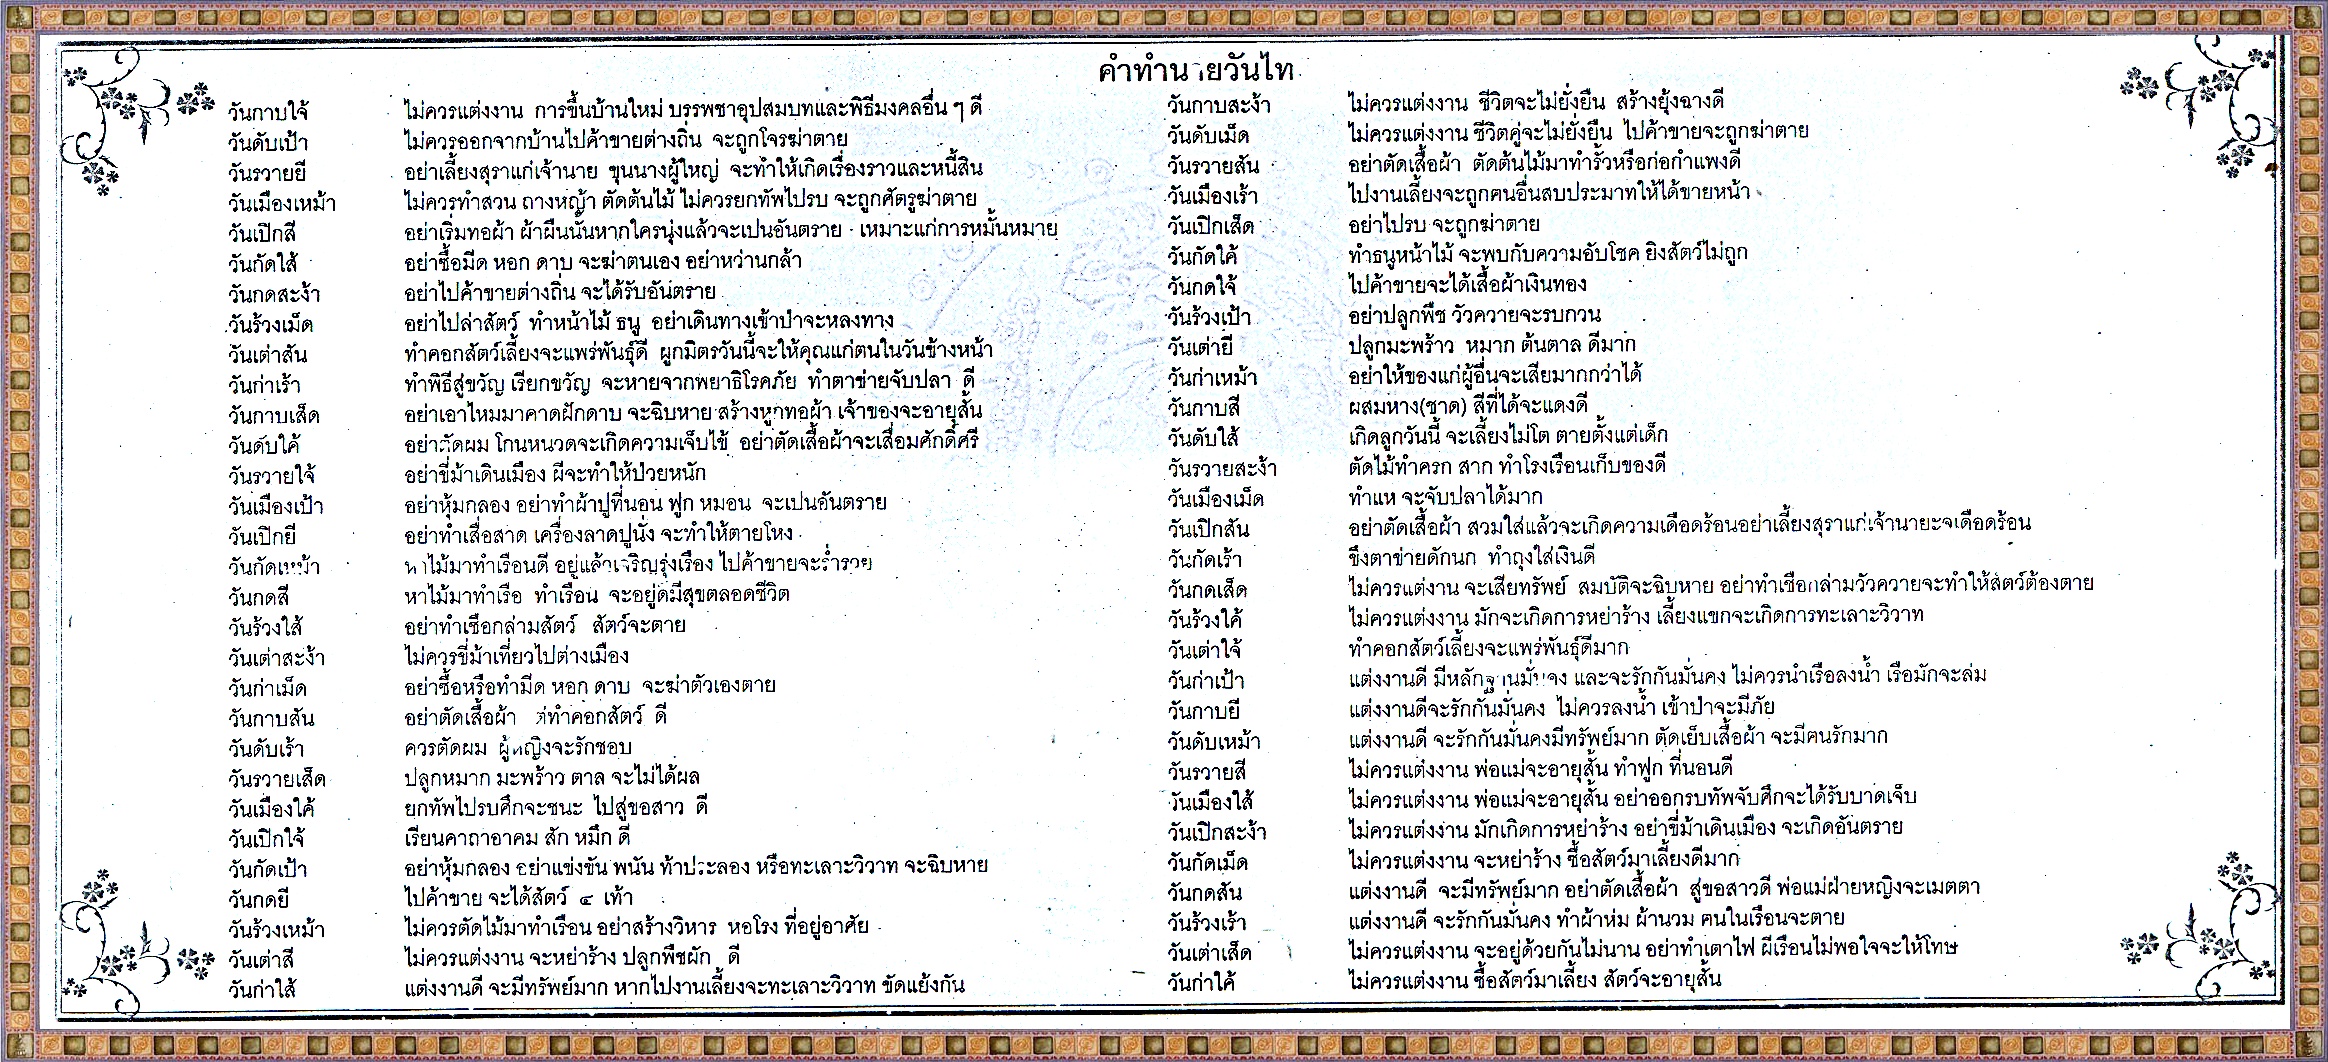 คำทำนายวันไท
วันกาบใจ้ ไม่ควรแต่งงาน การขึ้นบ้านใหม่ บรรพชาอุปสมบทและพิธีมงคลอื่น ๆ ดี
วันดับเป้า ไม่ควรออกจากบ้านไปค้าขายต่างถิ่น จะถูกโจรฆ่าตาย
วันรวายยี อย่าเลี้ยงสุราแก่เจ้านาย ขุนนางผู้ใหญ่ จะทำให้เกิดเรื่องราวและหนี้สิน
วันเมืองเหม้า ไม่ควรทำสวน ถางหญ้า ตัดต้นไม้ ไม่ควรยกทัพไปรบ จะถูกศัตรูฆ่าตาย
วันเปิกสี อย่าเริ่มทอผ้า ผ้าผืนนั้นหากใครนุ่งแล้วจะเปนอันตราย เหมาะแก่การหมั้นหมาย
วันกัดใส้ อย่าซื้อมีด หอก ดาบ จะฆ่าตนเอง อย่าหว่านกล้า
วันกดสะง้า อย่าไปค้าขายต่างถิ่น จะได้รับอันตราย
วันร้วงเม็ด อย่าไปล่าสัตว์ ทำหน้าไม้ ธนู อย่าเดินทางเข้าป่าจะหลงทาง
วันเต่าสัน ทำคอกสัตว์เลี้ยงจะแพร่พันธุ์ดี ผูกมิตรวันนี้จะให้คุณแก่ตนในวันข้างหน้า
วันก่าเร้า ทำพิธีสู่ขวัญ เรียกขวัญ จะหายจากพยาธิโรคภัย ทำตาข่ายจับปลา ดี
วันกาบเส็ด อย่าเอาไหมมาคาดฝักดาบ จะฉิบหาย สร้างหูกทอผ้า เจ้าของจะอายุสั้น
วันดับใค้ อย่าตัดผม โกนหนวดจะเกิดความเจ็บไข้ อย่าตัดเสื้อผ้าจะเสื่อมศักดิ์ศรี
วันรวายใจ้ อย่าขี่ม้าเดินเมือง ผีจะทำให้ป่วยหนัก
วันเมืองเป้า อย่าหุ้มกลอง อย่าทำผ้าปูที่นอน ฟูก หมอน จะเปนอันตราย
วันเปิกยี อย่าทำเสื่อสาด เครื่องลาดปูนั่ง จะทำให้ตายโหง
วันกัดเหม้า หาไม้มาทำเรือนดี อยู่แล้วเจริญรุ่งเรือง ไปค้าขายจะร่ำรวย
วันกดสี หาไม้มาทำเรือ ทำเรือน จะอยู่ดีมีสุขตลอดชีวิต
วันร้วงใส้ อย่าทำเชือกล่ามสัตว์ สัตว์จะตาย
วันเต่าสะง้า ไม่ควรขี่ม้าเที่ยวไปต่างเมือง
วันก่าเม็ด อย่าซื้อหรือทำมีด หอก ดาบ จะฆ่าตัวเองตาย
วันกาบสัน อย่าตัดเสื้อผ้า ทำคอกสัตว์ ดี
วันดับเร้า ควรตัดผม ผู้หญิงจะรักชอบ
วันรวายเส็ด ปลูกหมาก มะพร้าว ตาล จะไม่ได้ผล
วันเมืองใค้ ยกทัพไปรบศึกจะชนะ ไปสู่ขอสาว ดี
วันเปิกใจ้ เรียนคาถาอาคม สัก หมึก ดี
วันกัดเป้า อย่าหุ้มกลอง อย่าแข่งขัน พนัน ท้าประลอง หรือทะเลาะวิวาท จะฉิบหาย
วันกดยี ไปค้าขาย จะได้สัตว์ ๔ เท้า
วันร้วงเหม้า ไม่ควรตัดไม้มาทำเรือน อย่าสร้างวิหาร หอโรง ที่อยู่อาศัย
วันเต่าสี ไม่ควรแต่งงาน จะหย่าร้าง ปลูกพืชผัก ดี
วันก่าใส้ แต่งงานดี จะมีทรัพย์มาก หากไปงานเลี้ยงจะทะเลาะวิวาท ขัดแย้งกัน
วันกาบสะง้า ไม่ควรแต่งงาน ชีวิตจะไม่ยั่งยืน สร้างยุ้งฉางดี
วันดับเม็ด ไม่ควรแต่งงาน ชีวิตคู่จะไม่ยั่งยืน ไปค้าขายจะถูกฆ่าตาย
วันรวายสัน อย่าตัดเสื้อผ้า ตัดต้นไม้มาทำรั้วหรือก่อกำแพงดี
วันเมืองเร้า ไปงานเลี้ยงจะถูกฅนอื่นสบประมาทให้ได้ขายหน้า
วันเปิกเส็ด อย่าไปรบ จะถูกฆ่าตาย
วันกัดใค้ ทำธนูหน้าไม้ จะพบกับความอับโชค ยิงสัตว์ไม่ถูก
วันกดใจ้ ไปค้าขายจะได้เสื้อผ้าเงินทอง
วันร้วงเป้า อย่าปลูกพืช วัวควายจะรบกวน
วันเต่ายี ปลูกมะพร้าว หมาก ต้นตาล ดีมาก
วันก่าเหม้า อย่าให้ของแก่ผู้อื่นจะเสียมากกว่าได้
วันกาบสี ผสมหาง(ชาด) สีที่ได้จะแดงดี
วันดับใส้ เกิดลูกวันนี้ จะเลี้ยงไม่โต ตายตั้งแต่เด็ก
วันรวายสะง้า ตัดไม้ทำครก สาก ทำโรงเรือนเก็บของดี
วันเมืองเม็ด ทำแห จะจับปลาได้มาก
วันเปิกสัน อย่าตัดเสื้อผ้า สวมใส่แล้วจะเกิดความเดือดร้อนอย่าเลี้ยงสุราแก่เจ้านายะจเดือดร้อน
วันกัดเร้า ขึงตาข่ายดักนก ทำถุงใส่เงินดี
วันกดเส็ด ไม่ควรแต่งงาน จะเสียทรัพย์ สมบัติจะฉิบหาย อย่าทำเชือกล่ามวัวควายจะทำให้สัตว์ต้องตาย
วันร้วงใค้ ไม่ควรแต่งงาน มักจะเกิดการหย่าร้าง เลี้ยงแขกจะเกิดการทะเลาะวิวาท
วันเต่าใจ้ ทำคอกสัตว์เลี้ยงจะแพร่พันธุ์ดีมาก
วันก่าเป้า แต่งงานดี มีหลักฐานมั่นคง และจะรักกันมั่นคง ไม่ควรนำเรือลงน้ำ เรือมักจะล่ม
วันกาบยี แต่งงานดีจะรักกันมั่นคง ไม่ควรลงน้ำ เข้าป่าจะมีภัย
วันดับเหม้า แต่งงานดี จะรักกันมั่นคงมีทรัพย์มาก ตัดเย็บเสื้อผ้า จะมีฅนรักมาก
วันรวายสี ไม่ควรแต่งงาน พ่อแม่จะอายุสั้น ทำฟูก ที่นอนดี
วันเมืองใส้ ไม่ควรแต่งงาน พ่อแม่จะอายุสั้น อย่าออกรบทัพจับศึกจะได้รับบาดเจ็บ
วันเปิกสะง้า ไม่ควรแต่งงาน มักเกิดการหย่าร้าง อย่าขี่ม้าเดินเมือง จะเกิดอันตราย
วันกัดเม็ด ไม่ควรแต่งงาน จะหย่าร้าง ซื้อสัตว์มาเลี้ยงดีมาก
วันกดสัน แต่งงานดี จะมีทรัพย์มาก อย่าตัดเสื้อผ้า สู่ขอสาวดี พ่อแม่ฝ่ายหญิงจะเมตตา
วันร้วงเร้า แต่งงานดี จะรักกันมั่นคง ทำผ้าห่ม ผ้านวม ฅนในเรือนจะตาย
วันเต่าเส็ด ไม่ควรแต่งงาน จะอยู่ด้วยกันไม่นาน อย่าทำเตาไฟ ผีเรือนไม่พอใจจะให้โทษ
วันก่าใค้ ไม่ควรแต่งงาน ซื้อสัตว์มาเลี้ยง สัตว์จะอายุสั้น